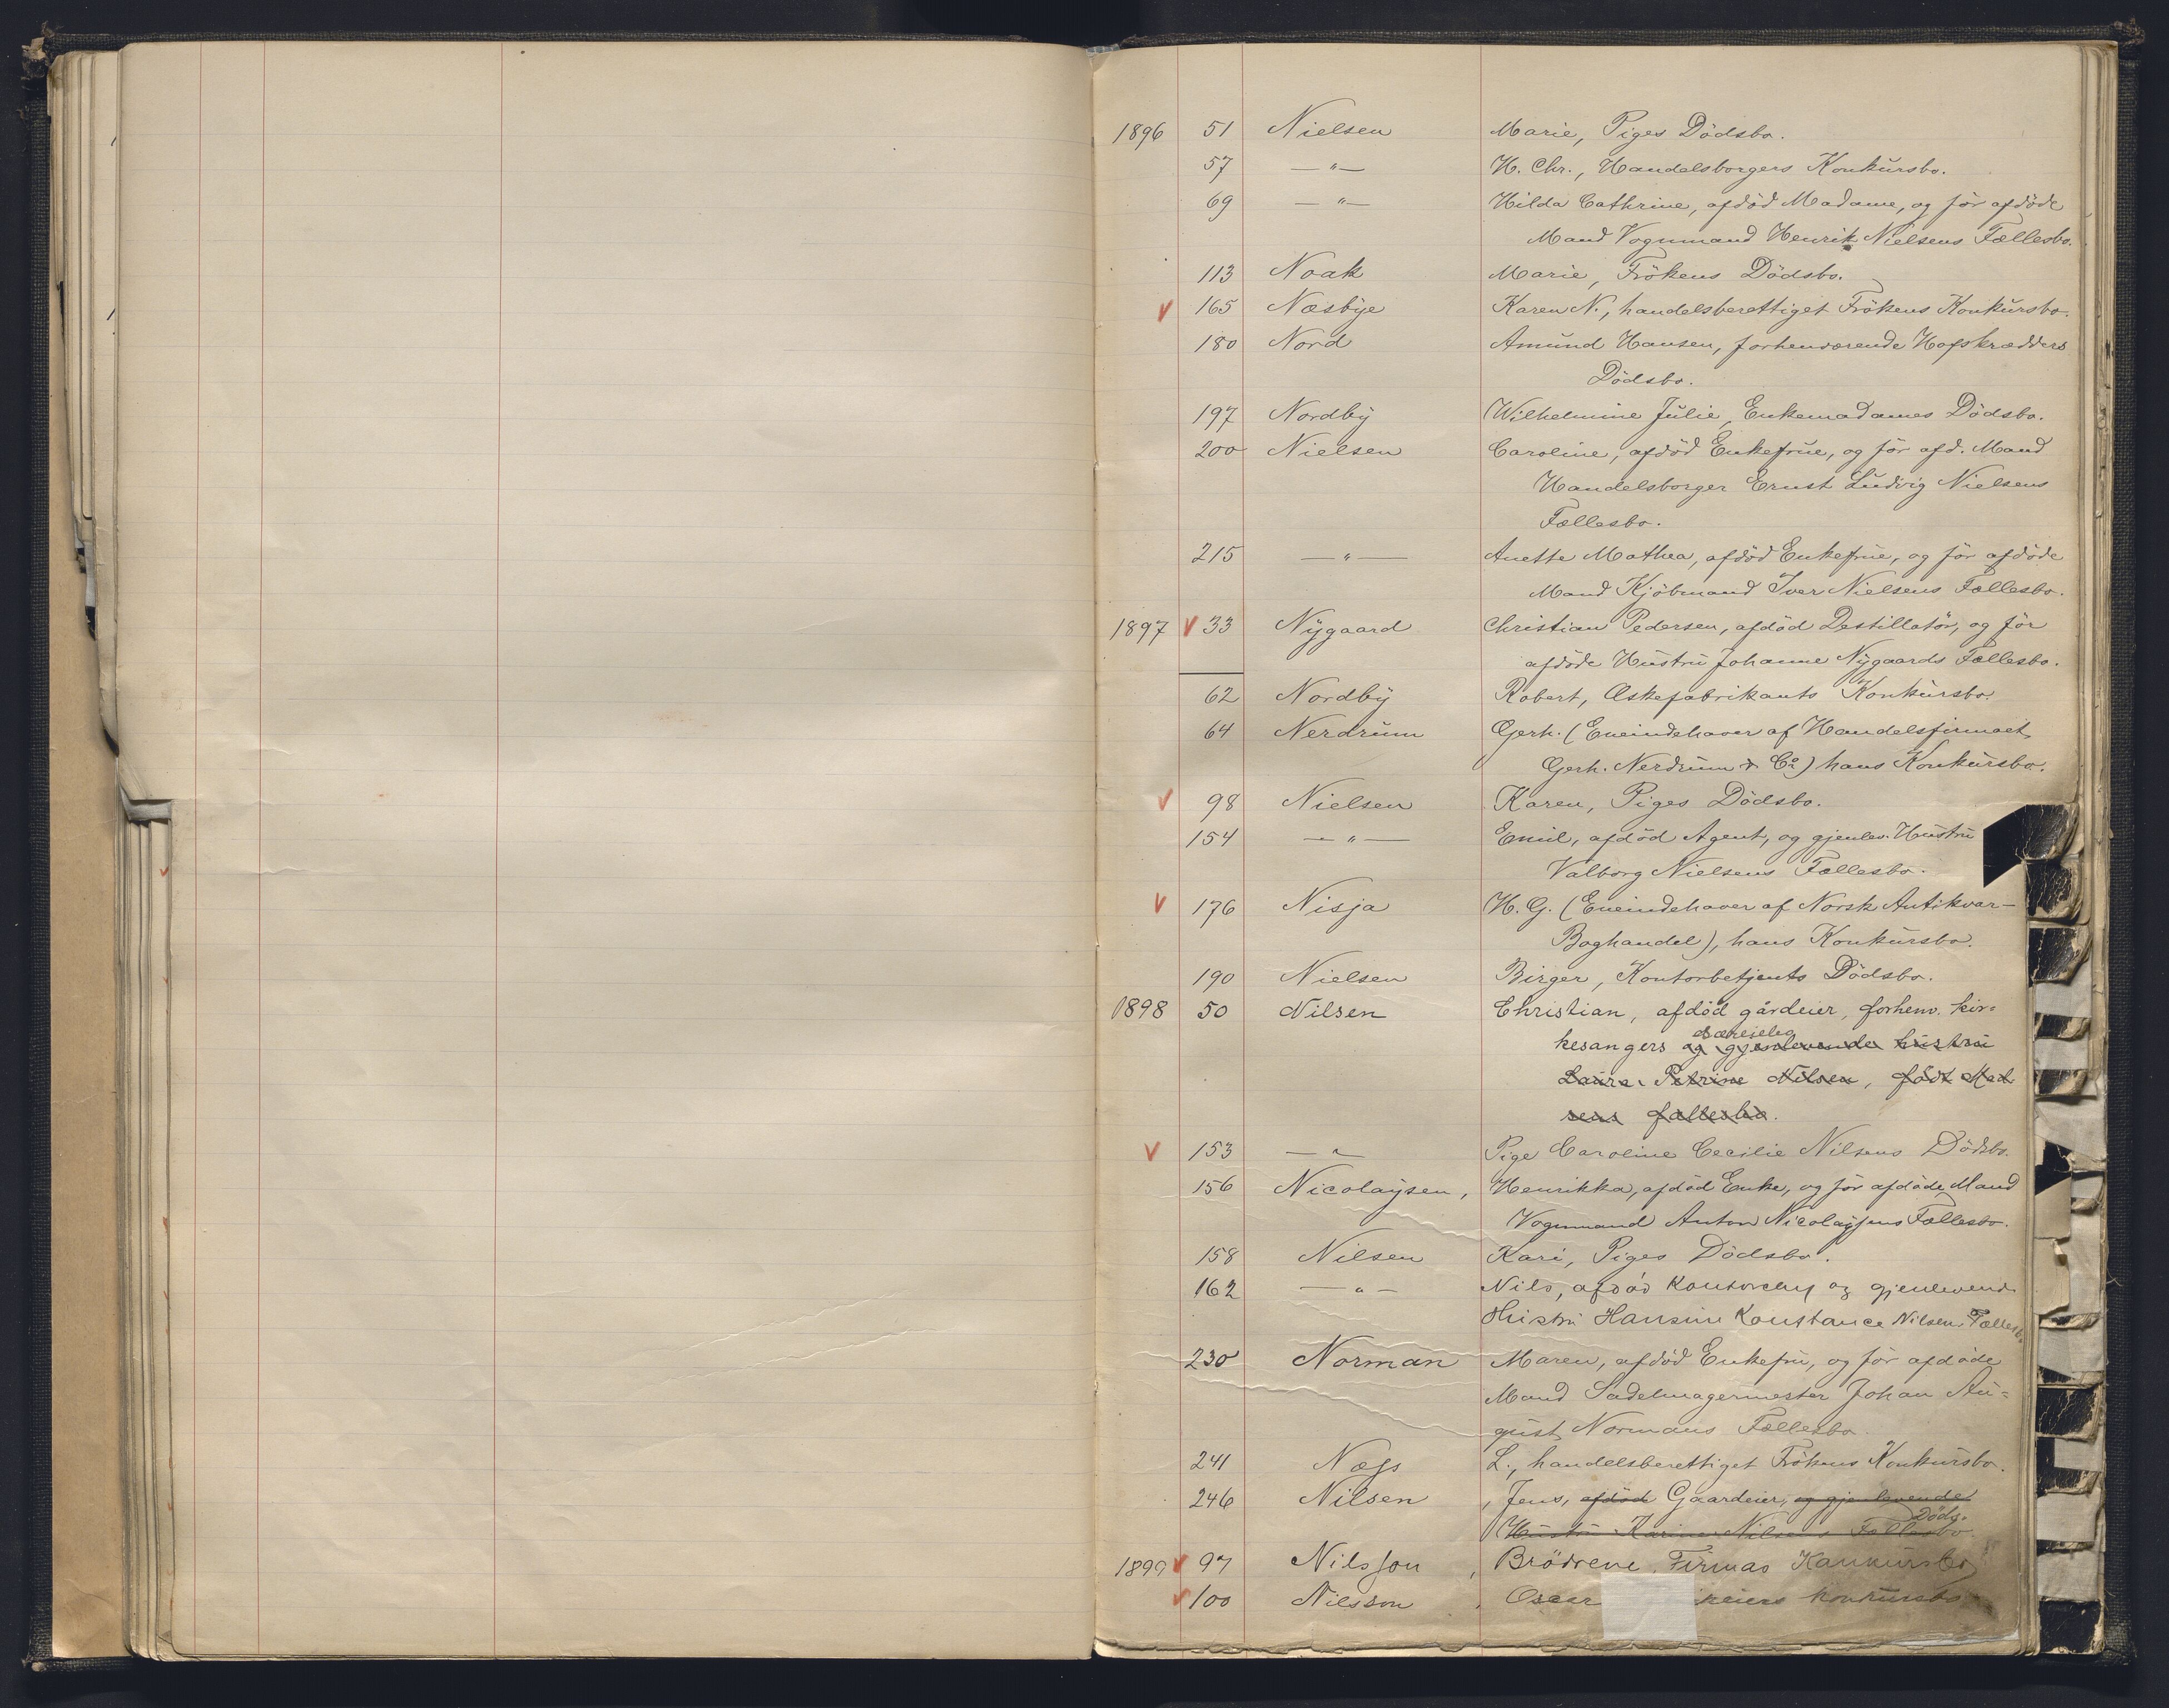 1896 51 Nielsen Marie, Piges Dödsbo.
57 —"— H. Chr., Handelsborgers Konkursbo.
69 —"— Hilda Cathrine, afdöd Madame, og för afdöde
Mand Vognmand Henrik Nielsens Fællesbo.
113 Noak Marie, Frökens Dödsbo.
V 165 Næsbye Karen N., handelsberettiget Frökens Konkursbo.
180 Nord Amund Hansen, forhenværende Hofskrædders
Dödsbo.
197 Nordby Wilhelmine Julie, Enkemadames Dödsbo.
200 Nielsen Caroline, afdöd Enkefrue, og för afd. Mand
Handelsborger Ernst Ludvig Nielsens
Fællesbo.
215 —"— Anette Mathea, afdöd Enkefrue, og för afdöde
Mand Kjöbmand Iver Nielsens Fællesbo.
1897 V 33 Nygaard Christian Pedersen, afdöd Destillatör, og för
afdöde Hustru Johanne Nygaards Fællesbo.
62 Nordby Robert, Æskefabrikants Konkursbo.
64 Nerdrum Gerh. (Eneindehaver af Handelsfirmaet
Gerh. Nerdrum & Co) hans Konkursbo.
V 98 Nielsen Karen, Piges Dödsbo.
154 —"— Emil, afdöd Agent, og gjenlev. Hustru
Valborg Nielsens Fællesbo.
V 176 Nisja H. G. (Eneindehaver af Norsk Antikvar-
Boghandel), hans Konkursbo.
190 Nielsen Birger, Kontorbetjents Dödsbo.
1898 50 Nilsen Christian, afdöd gårdeier, forhenv. kir=
særeieleg
kesangers og gjenlevende hustru
Laura Petrine Nilsen, födt Mad
sens fællesbo.
V 153 —"— Pige Caroline Cecilie Nilsens Dödsbo.
156 Nicolaysen, Henrikka, afdöd Enke, og för afdöde Mand
Vognmand Anton Nicolaysens Fællesbo.
158 Nilsen Kari, Piges Dödsbo.
162 —"— Nils, afdöd Kontorchef og gjenlevende
Hustru Hansine Konstance Nilsens Fællesbo
230 Norman Maren, afdöd Enkefru, og för afdöde
Mand Sadelmagermester Johan Au=
gust Normans Fællesbo.
241 Næss L., handelsberettiget Frökens Konkursbo.
246 Nilsen, Jens, afdöd Gaardeier, og gjenlevende
Dödsb.
Hustru Karine Nilsens Fællesbo
1899 V 97 Nilsson, Brödrene, Firmas Konkursbo
V 100 Nilsson, Oscar keiers konkursbo